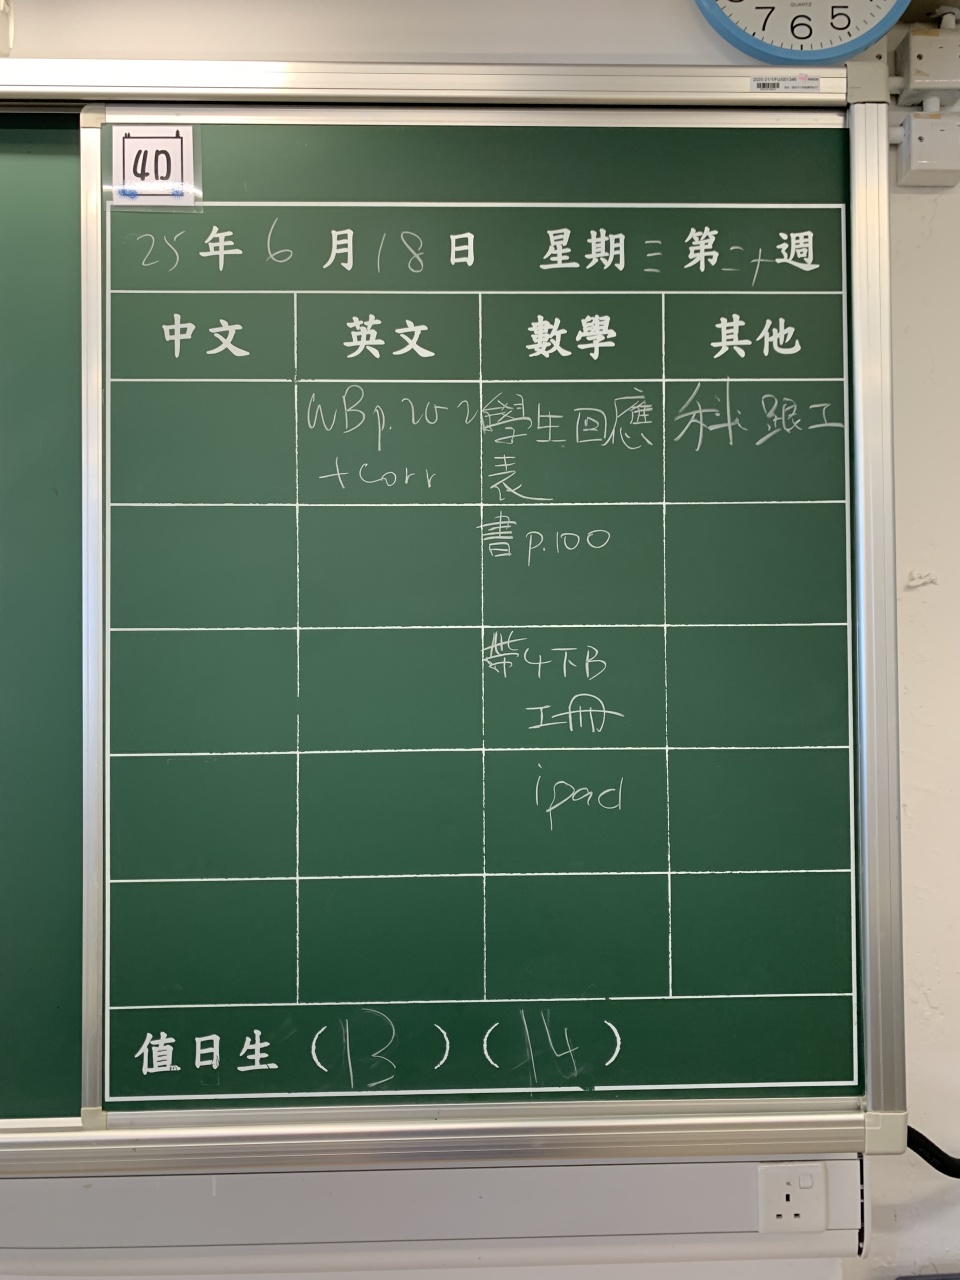 7 6 5
QUARTZ
4D
25年6月18日 星期三第二十週
中文 英文 數學 其他
WB p.20-21
+corr
學生回應
表
科 跟工
書 p.100
帶4下B
工冊
ipad
值日生(13)(14)